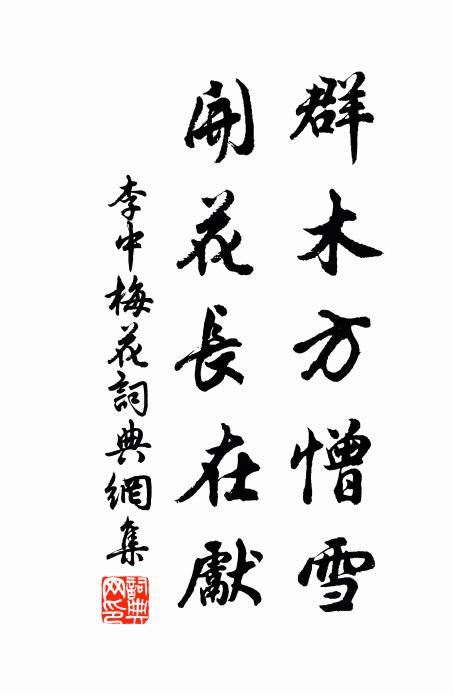 群木方憎雪
開花長在獻
李中梅花詞典網集
詞典
网印